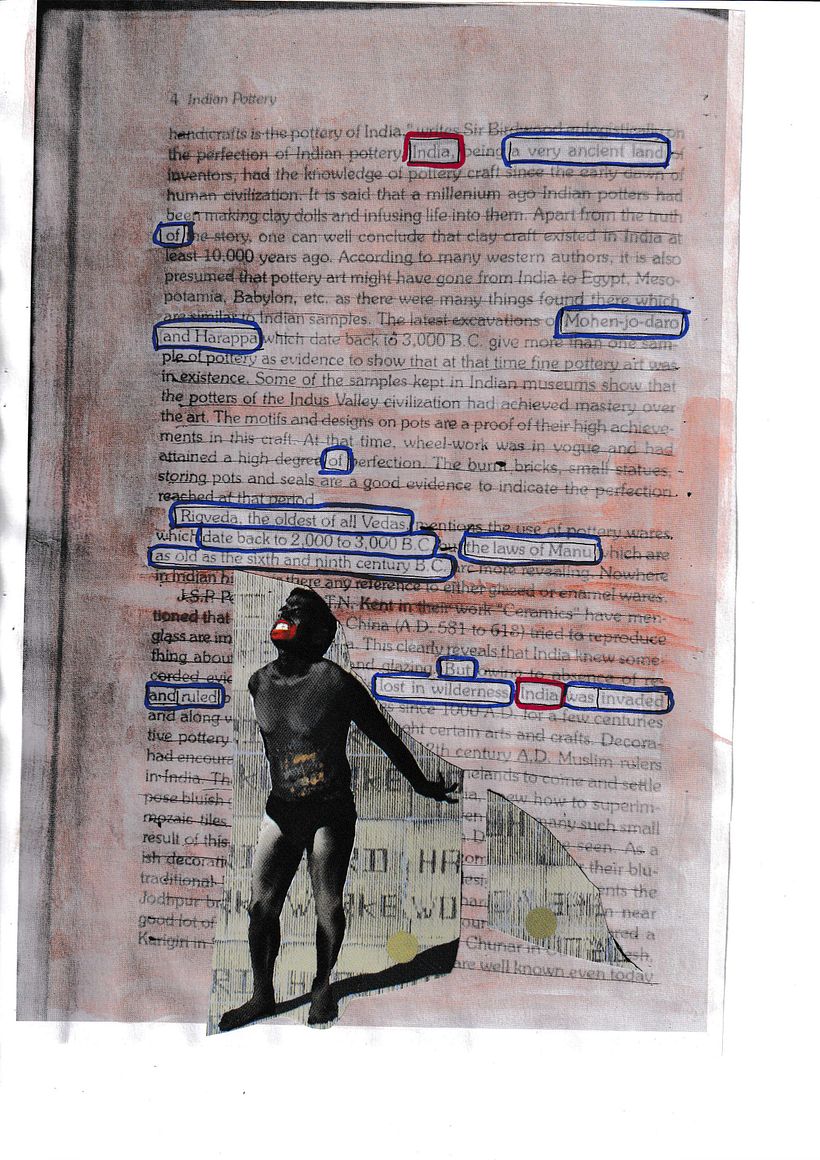 4 Indian Pottery
handicrafts is the pottery of India," writes Sir Birdwood eulogistically on
the perfection of Indian pottery. India, being a very ancient land of
inventors, had the knowledge of pottery craft since the early dawn of
human civilization. It is said that a millenium ago Indian potters had
been making clay dolls and infusing life into them. Apart from the truth
of the story, one can well conclude that clay craft existed in India at
least 10,000 years ago. According to many western authors, it is also
presumed that pottery art might have gone from India to Egypt, Meso-
potamia, Babylon, etc. as there were many things found there which
are similar to Indian samples. The latest excavations of Mohen-jo-daro
and Harappa which date back to 3,000 B.C. give more than one sam-
ple of pottery as evidence to show that at that time fine pottery art was
in existence. Some of the samples kept in Indian museums show that
the potters of the Indus Valley civilization had achieved mastery over
the art. The motifs and designs on pots are a proof of their high achieve-
ments in this craft. At that time, wheel-work was in vogue and had
attained a high degree of perfection. The burnt bricks, small statues,
storing pots and seals are a good evidence to indicate the perfection
reached at that period.
Rigveda, the oldest of all Vedas, mentions the use of pottery wares,
which date back to 2,000 to 3,000 B.C. but the laws of Manu which are
as old as the sixth and ninth century B.C. are more revealing. Nowhere
in Indian hi there any reference to either glazed or enamel wares.
J.S.P. T.N. Kent in their work "Ceramics" have men-
tioned that China (A.D. 581 to 618) tried to reproduce
glass are im This clearly reveals that India knew some-
thing about and glazing. But owing to absence of re-
corded evi lost in wilderness India was invaded
and ruled since 1000 A.D. for a few centuries
and along w ght certain arts and crafts. Decora-
tive pottery th century A.D. Muslim rulers
had encoura elands to come and settle
in India. Th new how to superim-
pose bluish many such small
mozaic tiles seen. As a
result of this their blu-
ish decorati ents the
traditional near
Jodhpur br red a
good lot of Chunar in
Karigiri in are well known even today